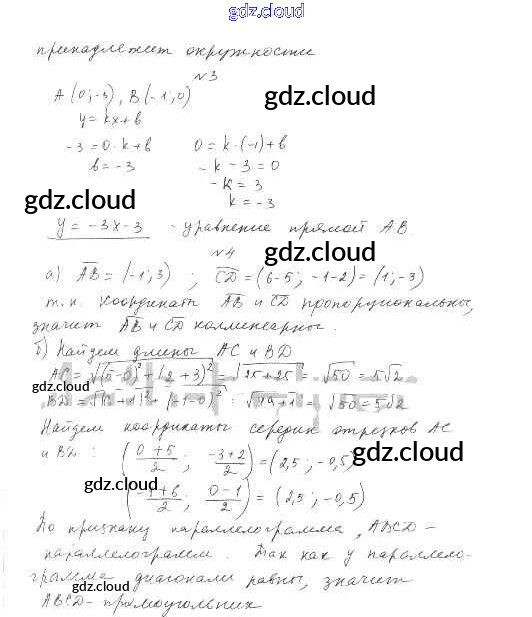 gdz.cloud
принадлежит окружности
№3
A (0; -3), B (-1; 0)
gdz.cloud
y = kx + b
-3 = 0 · k + b 0 = k · (-1) + b
b = -3 -k - 3 = 0
-k = 3
gdz.cloud k = -3
y = -3x - 3 - уравнение прямой AB.
№4
gdz.cloud
а) AB = (-1; 3) ; CD = (6-5; -1-2) = (1; -3)
т.к. координаты AB и CD пропорциональны,
значит AB и CD коллинеарны.
б) Найдем длины AC и BD
AC = √(5-0)² + (2+3)² = √25+25 = √50 = 5√2
gdz.cloud gdz.cloud
BD = √(6+1)² + (-1-0)² = √49+1 = √50 = 5√2
Найдем координаты середин отрезков AC
и BD: (0+5/2 ; -3+2/2) = (2,5; -0,5)
gdz.cloud
gdz.cloud
(-1+6/2 ; 0-1/2) = (2,5; -0,5)
По признаку параллелограмма, ABCD -
параллелограмм. Так как у параллело-
gdz.cloud
грамма диагонали равны, значит
ABCD - прямоугольник